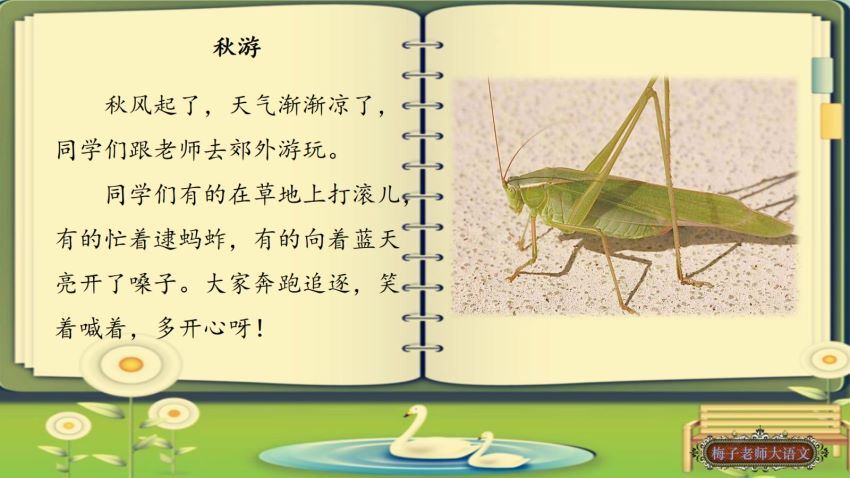 秋游
秋风起了，天气渐渐凉了，
同学们跟老师去郊外游玩。
同学们有的在草地上打滚儿，
有的忙着逮蚂蚱，有的向着蓝天
亮开了嗓子。大家奔跑追逐，笑
着喊着，多开心呀！
梅子老师大语文